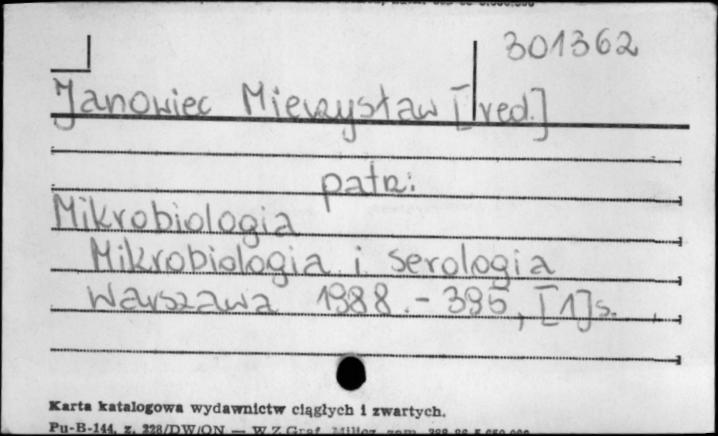 301362
Janowiec Mieczysław [red.]
patrz:
Mikrobiologia
Mikrobiologia i serologia
Warszawa 1988.- 395, [1]s.
Karta katalogowa wydawnictw ciągłych i zwartych.
Pu-B-144, z. 228/DW/ON — W.Z.Graf.